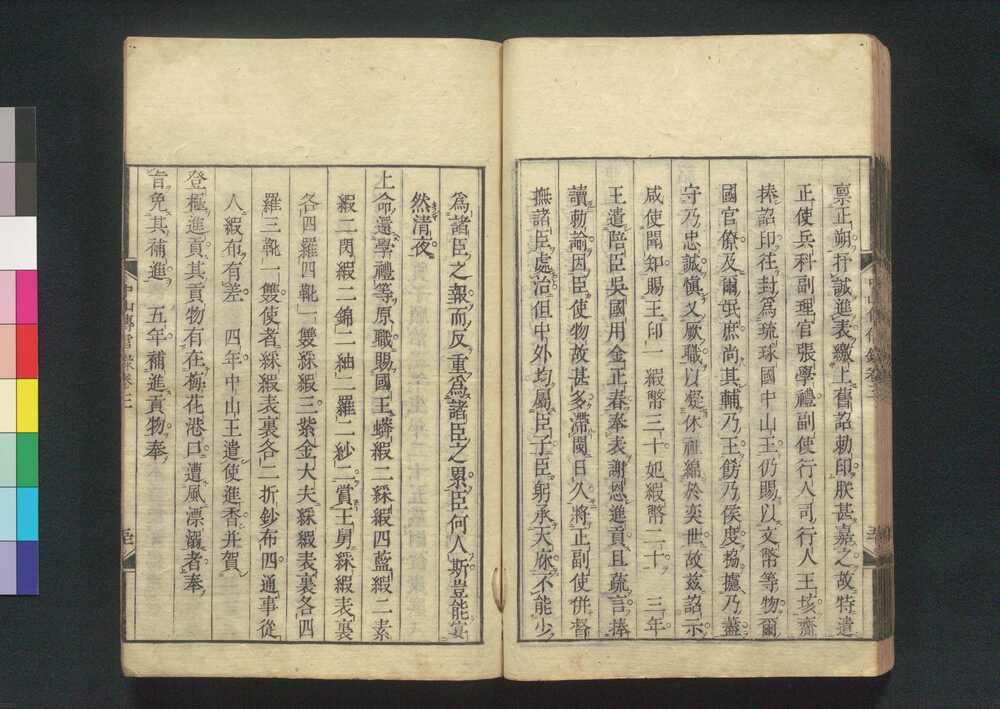 稟正朔抒誠進表繳上舊詔勅印朕甚嘉之故特遣
正使兵科副理官張學禮副使行人司行人王垓齎
捧詔印往封爲琉球國中山王仍賜以文幣等物爾
國官僚及爾氓庶尚其輔乃王飭乃侯度撝攄乃藎
守乃忠誠愼乂厥職以凝休祉綿於奕世故兹詔示
咸使聞知賜王印一緞幣三十妃緞幣二十　三年
王遣陪臣吳國用金正春奉表謝恩進貢且疏言捧
讀勅諭因臣使物故甚多滯閩日久將正副使併督
撫諸臣處治但中外均屬臣子臣躬承天庥不能少
爲諸臣之報而反重爲諸臣之累臣何人斯豈能宴
然清夜
上命還學禮等原職賜國王蟒緞二綵緞四藍緞二素
緞二閃緞二錦二紬二羅二紗二賞王舅綵緞表裏
各四羅四靴一雙綵緞三紫金大夫綵緞表裏各四
羅三靴一雙使者綵緞表裏各二折鈔布四通事從
人緞布有差　四年中山王遣使進香并賀
登極進貢其貢物有在梅花港口遭風漂溺者奉
旨免其補進　五年補進貢物奉
中山傳信錄卷三